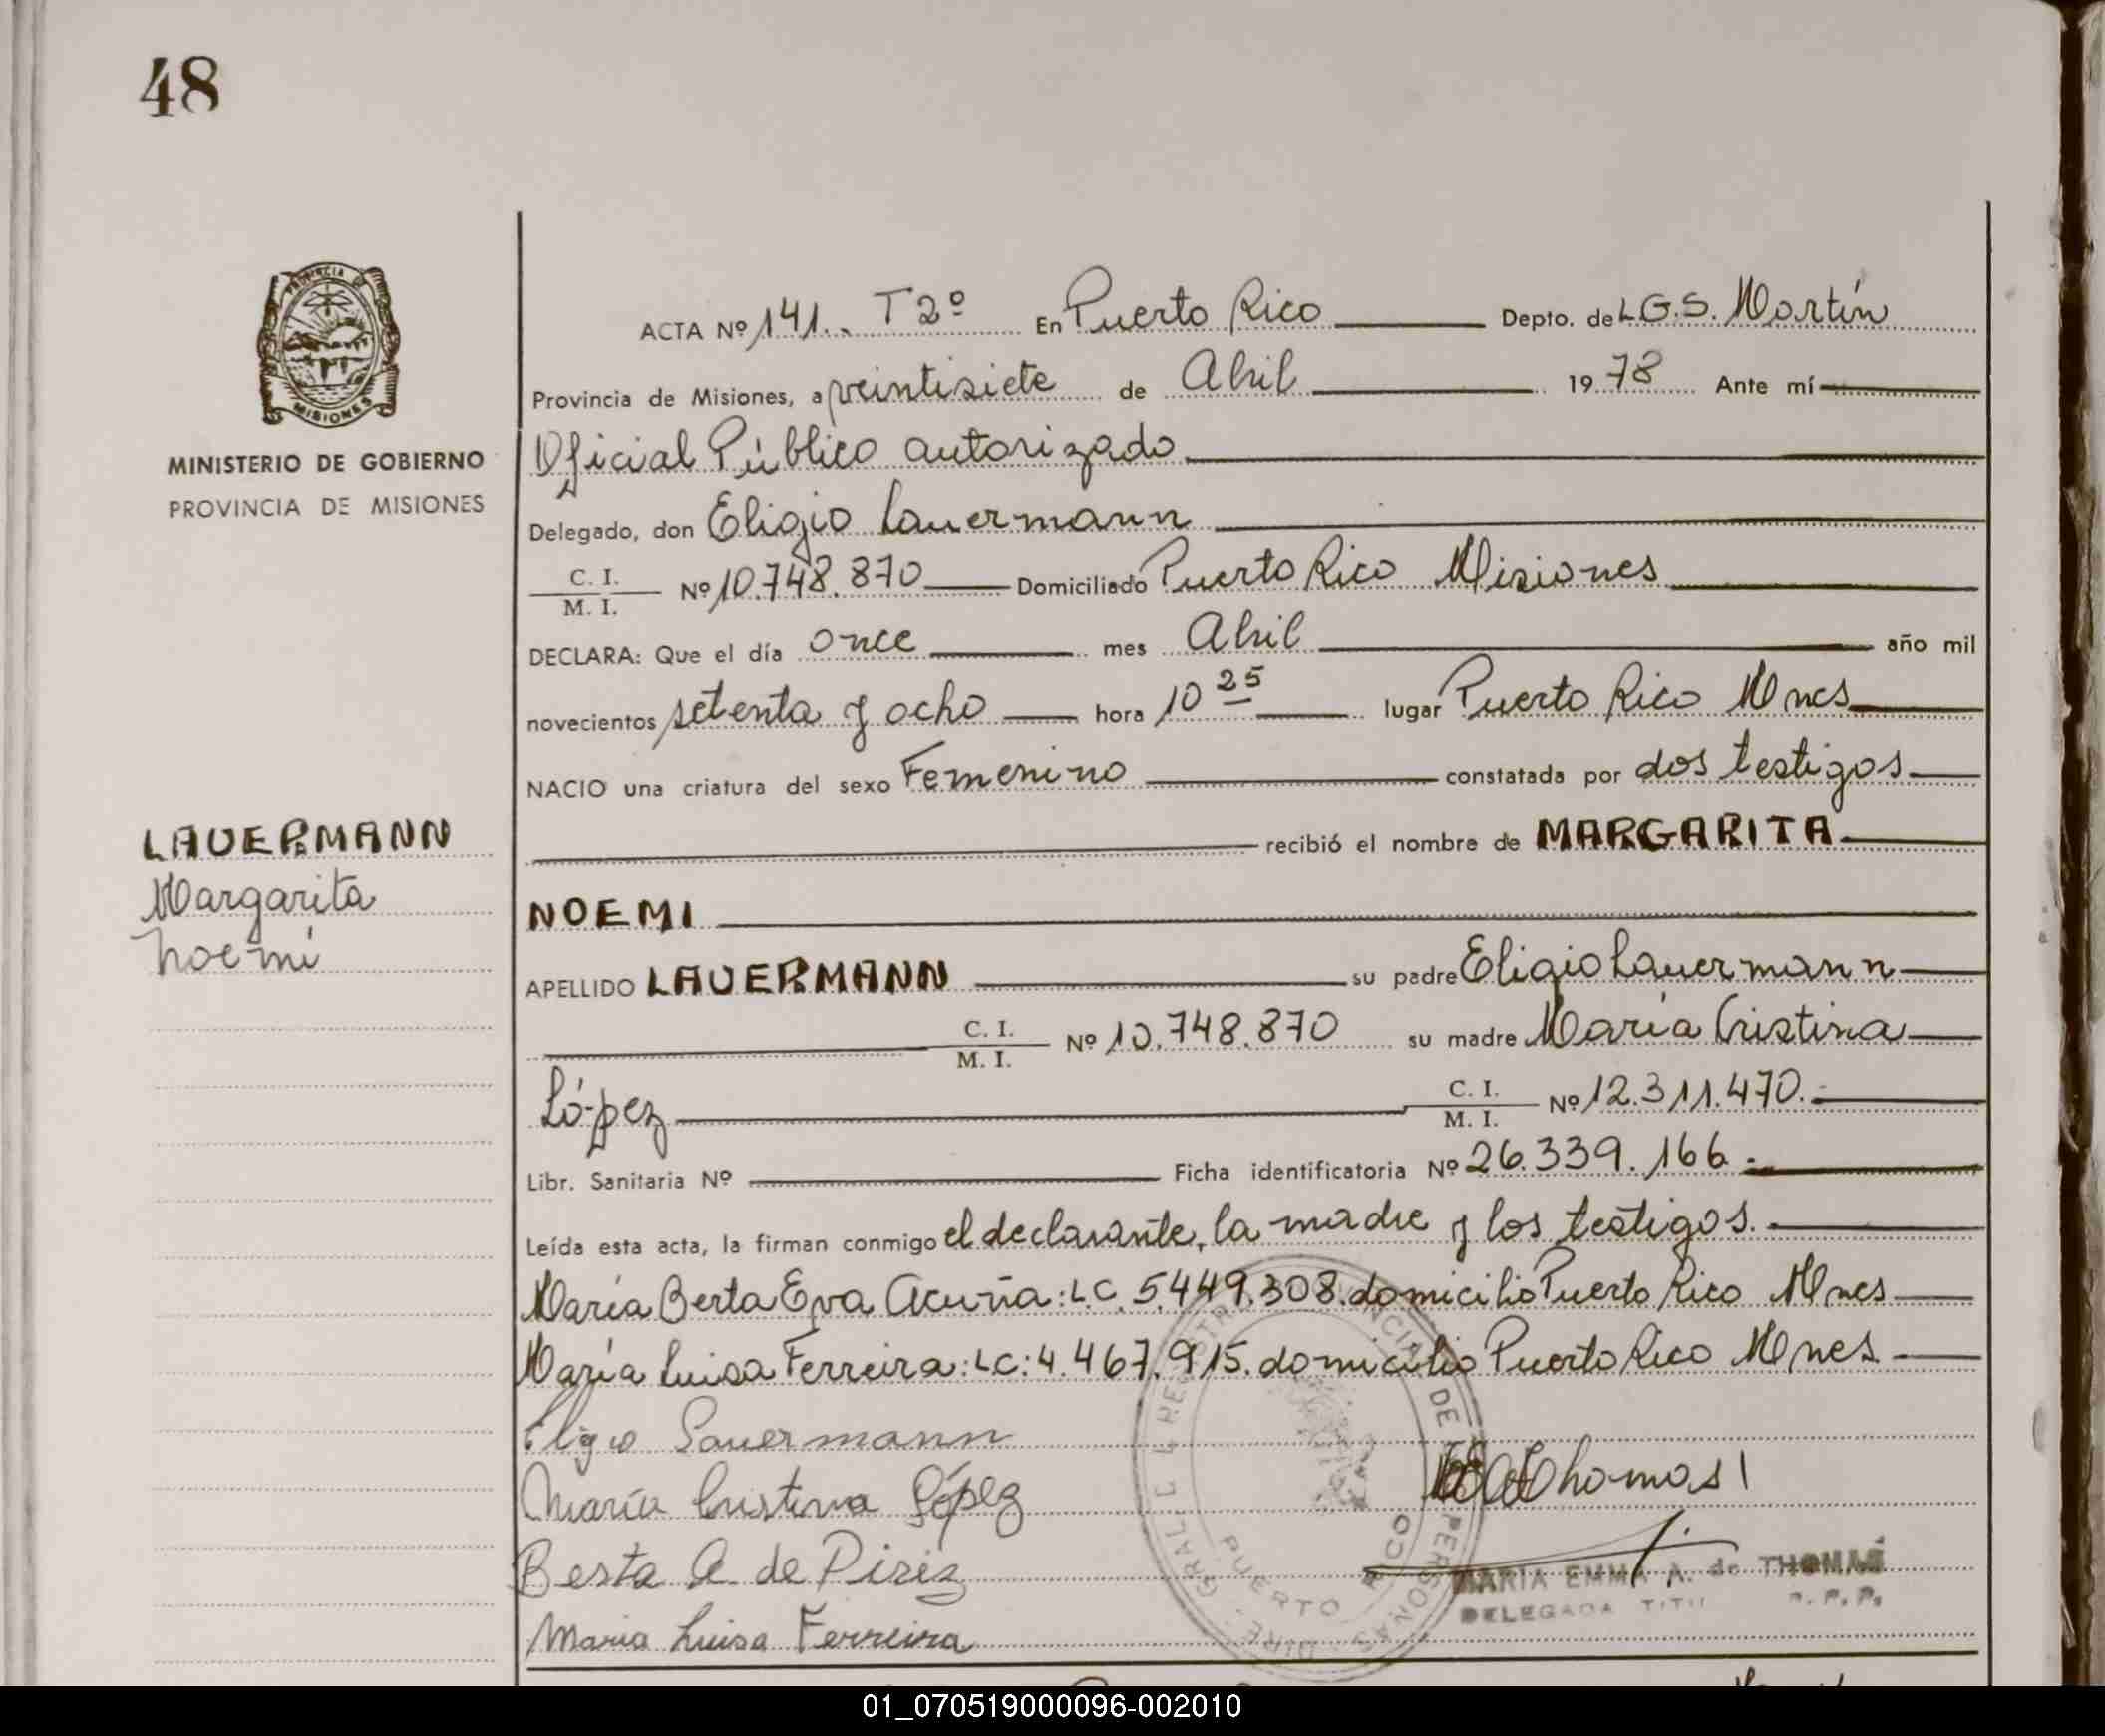 48
PROVINCIA DE
MISIONES
MINISTERIO DE GOBIERNO
PROVINCIA DE MISIONES
ACTA Nº 141.. T 2º En Puerto Rico Depto. de L.G.S. Martín
Provincia de Misiones, a veintisiete de Abril 1978 Ante mí
Oficial Público autorizado
Delegado, don Eligio Lauermann
C. I.
M. I. Nº 10.748.870 Domiciliado Puerto Rico Misiones
DECLARA: Que el día once mes Abril año mil
novecientos setenta y ocho hora 10 25 lugar Puerto Rico Mnes
NACIO una criatura del sexo Femenino constatada por dos testigos
LAUERMANN
recibió el nombre de MARGARITA
Margarita
Noemí
NOEMI
APELLIDO LAUERMANN su padre Eligio Lauermann
C. I.
M. I. Nº 10.748.870 su madre María Cristina
López C. I.
M. I. Nº 12.311.470.-
Libr. Sanitaria Nº Ficha identificatoria Nº 26.339.166.-
Leída esta acta, la firman conmigo el declarante, la madre y los testigos.-
María Berta Eva Acuña: L.C. 5.449.308. domicilio Puerto Rico Mnes
María Luisa Ferreira: LC: 4.467.915. domicilio Puerto Rico Mnes
Eligio Lauermann
María Cristina López
Thomas
Berta A. de Piriz
MARIA EMMA A. de THOMAS
DELEGADA TITU R. P. P.
Maria Luisa Ferreira
PUERTO RICO
01_070519000096-002010